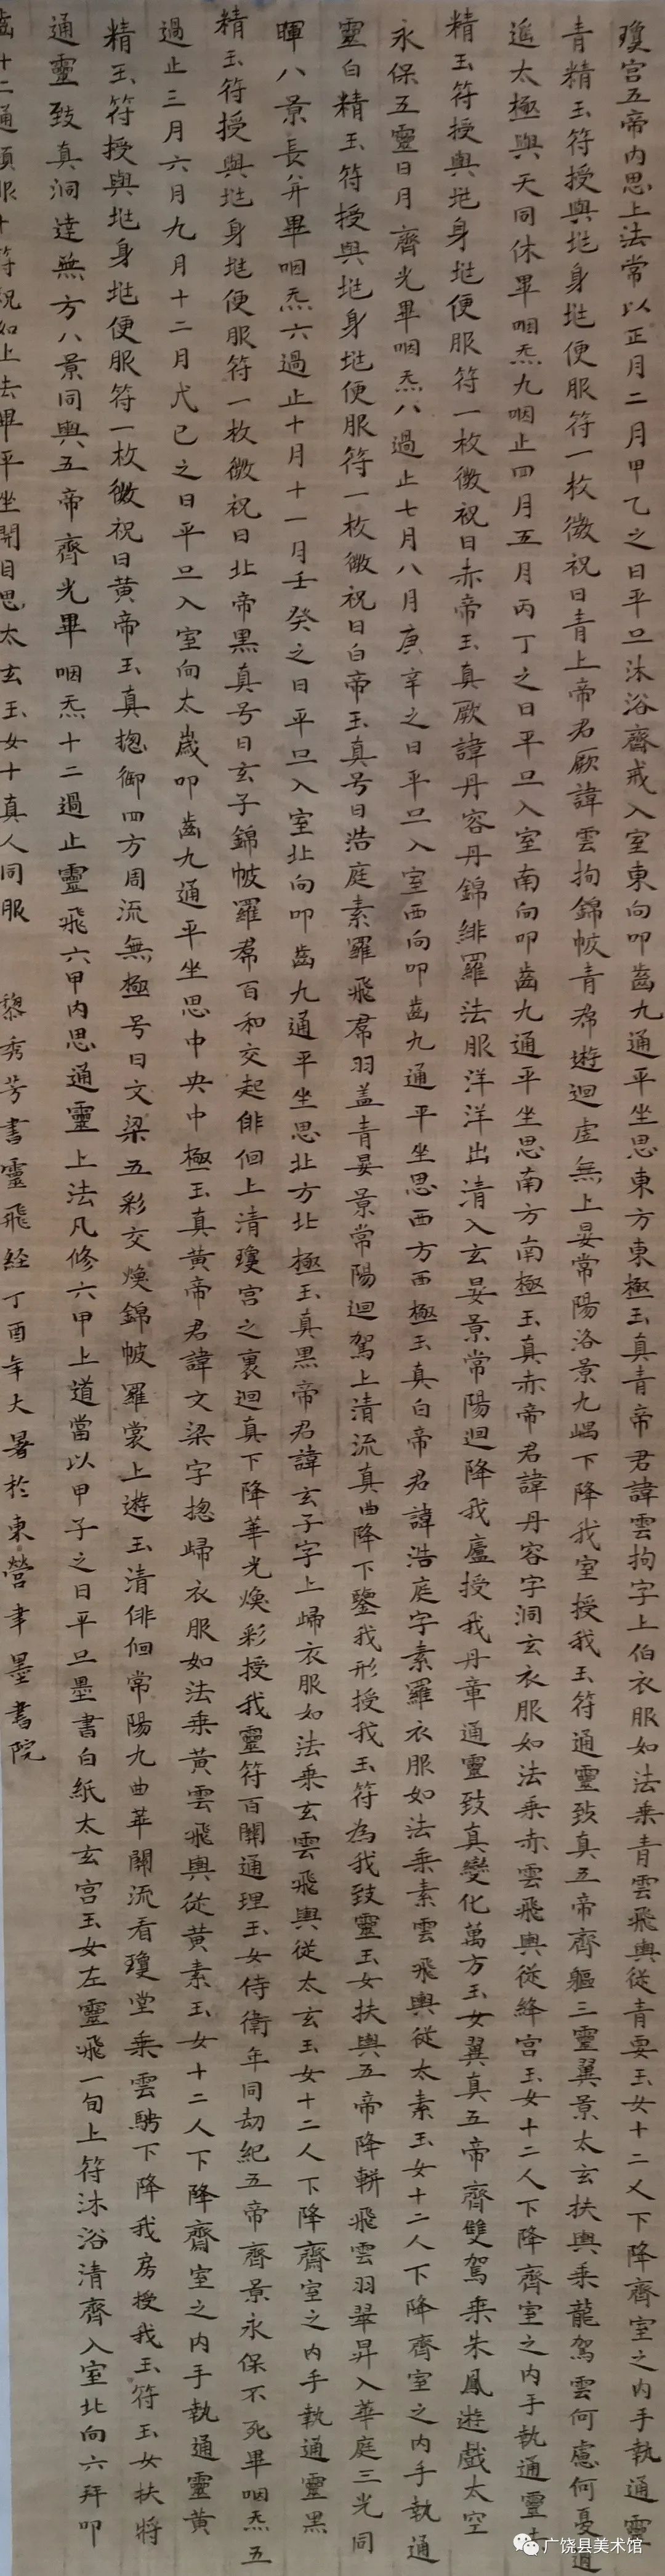 瓊宮五帝內思上法常以正月二月甲乙之日平旦沐浴齊戒入室東向叩齒九通平坐思東方東極玉真青帝君諱雲拘字上伯衣服如法乘青雲飛輿從青要玉女十二人下降齊室之內手執通靈
青精玉符授與𡉄身𡉄便服符一枚微祝曰青上帝君厥諱雲拘錦帔青帬遊迴虛無上晏常陽洛景九嵎下降我室授我玉符通靈致真五帝齊軀三靈翼景太玄扶輿乘龍駕雲何慮何憂逍
遙太極與天同休畢咽炁九咽止四月五月丙丁之日平旦入室南向叩齒九通平坐思南方南極玉真赤帝君諱丹容字洞玄衣服如法乘赤雲飛輿從絳宮玉女十二人下降齊室之內手執通靈
精玉符授與𡉄身𡉄便服符一枚微祝曰赤帝玉真厥諱丹容丹錦緋羅法服洋洋出清入玄晏景常陽迴降我廬授我丹章通靈致真變化萬方玉女翼真五帝齊雙駕乘朱鳳遊戲太空
永保五靈日月齊光畢咽炁八過止七月八月庚辛之日平旦入室西向叩齒九通平坐思西方西極玉真白帝君諱浩庭字素羅衣服如法乘素雲飛輿從太素玉女十二人下降齊室之內手執通
靈白精玉符授與𡉄身𡉄便服符一枚微祝曰白帝玉真号曰浩庭素羅飛帬羽蓋青晏景常陽迴駕上清流真曲降下鑒我形授我玉符為我致靈玉女扶輿五帝降軿飛雲羽翠昇入華庭三光同
暉八景長并畢咽炁六過止十月十一月壬癸之日平旦入室北向叩齒九通平坐思北方北極玉真黑帝君諱玄子字上歸衣服如法乘玄雲飛輿從太玄玉女十二人下降齊室之內手執通靈黑
精玉符授與𡉄身𡉄便服符一枚微祝曰北帝黑真号曰玄子錦帔羅帬百和交起俳佪上清瓊宮之裏迴真下降華光煥彩授我靈符百關通理玉女侍衛年同劫紀五帝齊景永保不死畢咽炁五
過止三月六月九月十二月戊己之日平旦入室向太歲叩齒九通平坐思中央中極玉真黃帝君諱文梁字揔歸衣服如法乘黃雲飛輿從黃素玉女十二人下降齊室之內手執通靈黃
精玉符授與𡉄身𡉄便服符一枚微祝曰黃帝玉真揔御四方周流無極号曰文梁五彩交煥錦帔羅裳上遊玉清俳佪常陽九曲華關流看瓊堂乘雲騁下降我房授我玉符玉女扶將
通靈致真洞達無方八景同輿五帝齊光畢咽炁十二過止靈飛六甲內思通靈上法凡修六甲上道當以甲子之日平旦墨書白紙太玄宮玉女左靈飛一旬上符沐浴清齊入室北向六拜叩
齒十二通頓服十符祝如上法畢平坐閉目思太玄玉女十真人同服 黎秀芳書靈飛經丁酉年大暑於東營聿墨書院
广饶县美术馆